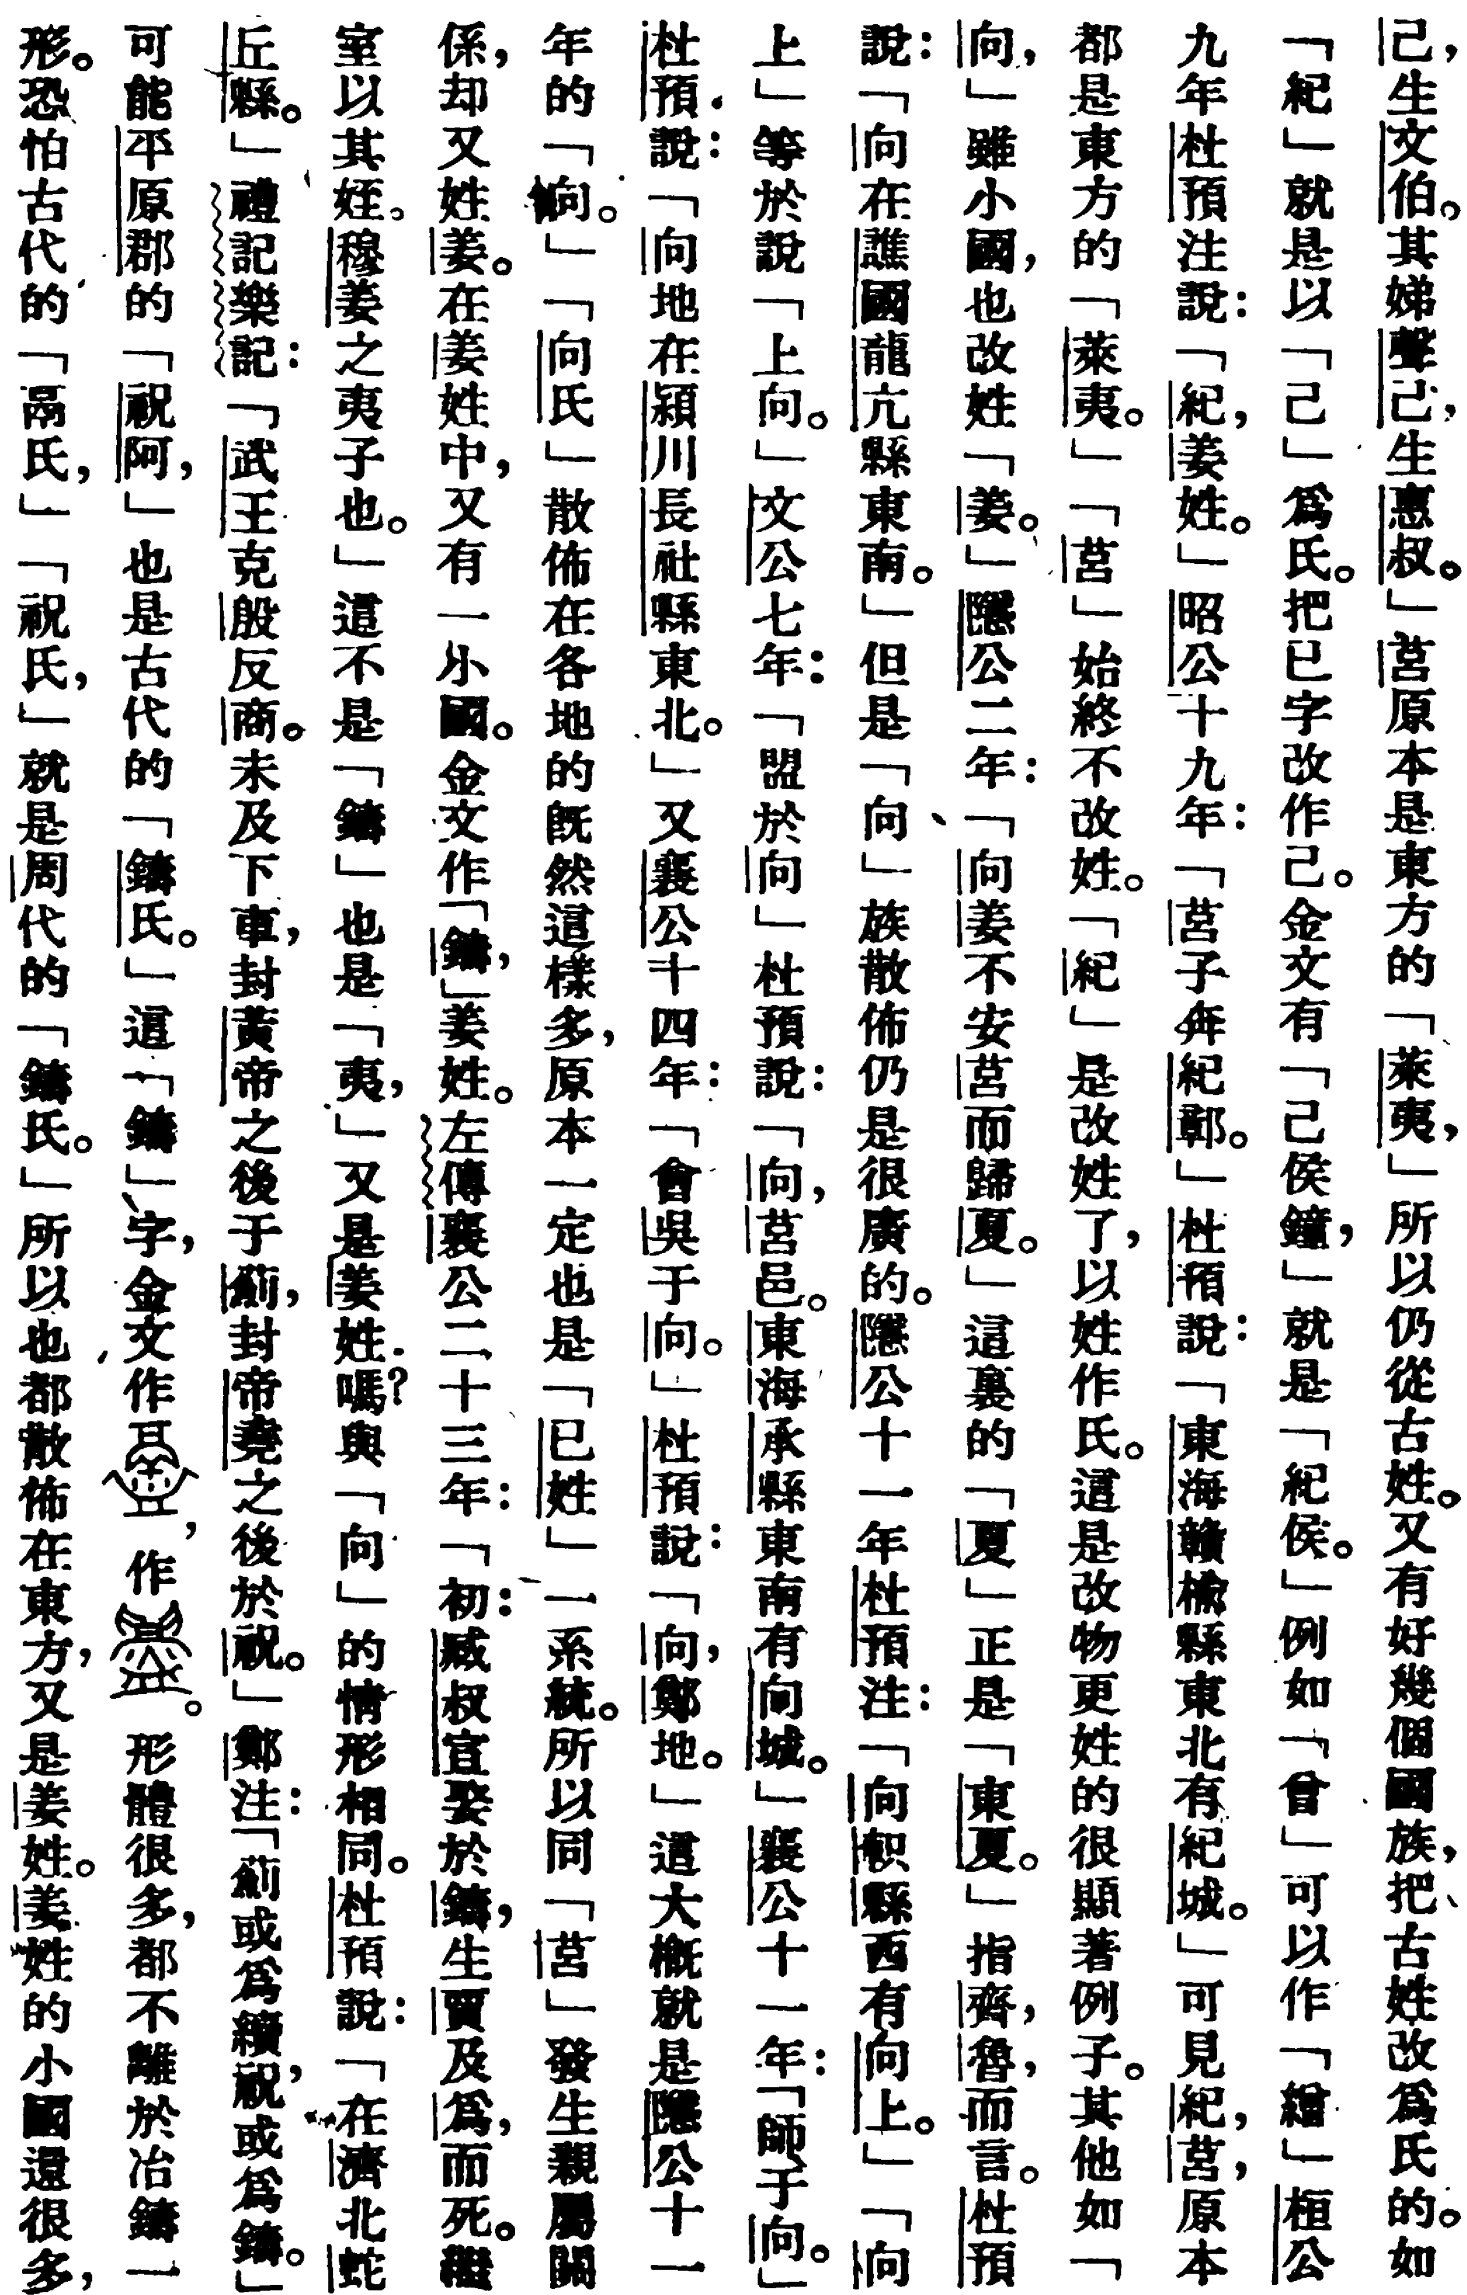 己，生文伯。其娣聲己，生惠叔。」莒原本是東方的「萊夷，」所以仍從古姓。又有好幾個國族，把古姓改爲氏的。如
「紀」就是以「己」爲氏。把已字改作己。金文有「己侯鐘，」就是「紀侯。」例如「曾」可以作「繒」桓公
九年杜預注說：「紀，姜姓。」昭公十九年：「莒子奔紀鄣。」杜預說：「東海贛榆縣東北有紀城。」可見紀，莒，原本
都是東方的「萊夷。」「莒」始終不改姓。「紀」是改姓了，以姓作氏。這是改物更姓的很顯著例子。其他如「
向，」雖小國，也改姓「姜。」隱公二年：「向姜不安莒而歸夏。」這裏的「夏」正是「東夏。」指齊，魯，而言。杜預
說：「向在譙國龍亢縣東南。」但是「向」族散佈仍是很廣的。隱公十一年杜預注：「向軹縣西有向上。」「向
上」等於說「上向。」文公七年：「盟於向」杜預說：「向，莒邑。東海承縣東南有向城。」襄公十一年：「師于向。」
杜預說：「向地在潁川長社縣東北。」又襄公十四年：「會吳于向。」杜預說：「向，鄭地。」這大概就是隱公十一
年的「向。」「向氏」散佈在各地的既然這樣多，原本一定也是「已姓」一系統。所以同「莒」發生親屬關
係，却又姓姜。在姜姓中，又有一小國。金文作「鑄，」姜姓。左傳襄公二十三年：「初：臧叔宣娶於鑄，生賈及爲，而死。繼
室以其姪。穆姜之夷子也。」這不是「鑄」也是「夷，」又是姜姓嗎？與「向」的情形相同。杜預說：「在濟北蛇
丘縣。」禮記樂記：「武王克殷反商。未及下車，封黃帝之後于薊，封帝堯之後於祝。」鄭注：「薊或爲續，祝或爲鑄。」
可能平原郡的「祝阿，」也是古代的「鑄氏。」這「鑄」字，金文作，作。形體很多，都不離於冶鑄一
形。恐怕古代的「鬲氏，」「祝氏，」就是周代的「鑄氏。」所以也都散佈在東方，又是姜姓。姜姓的小國還很多，